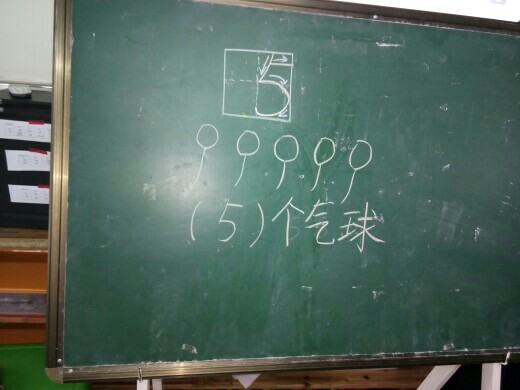 5
(5)个气球